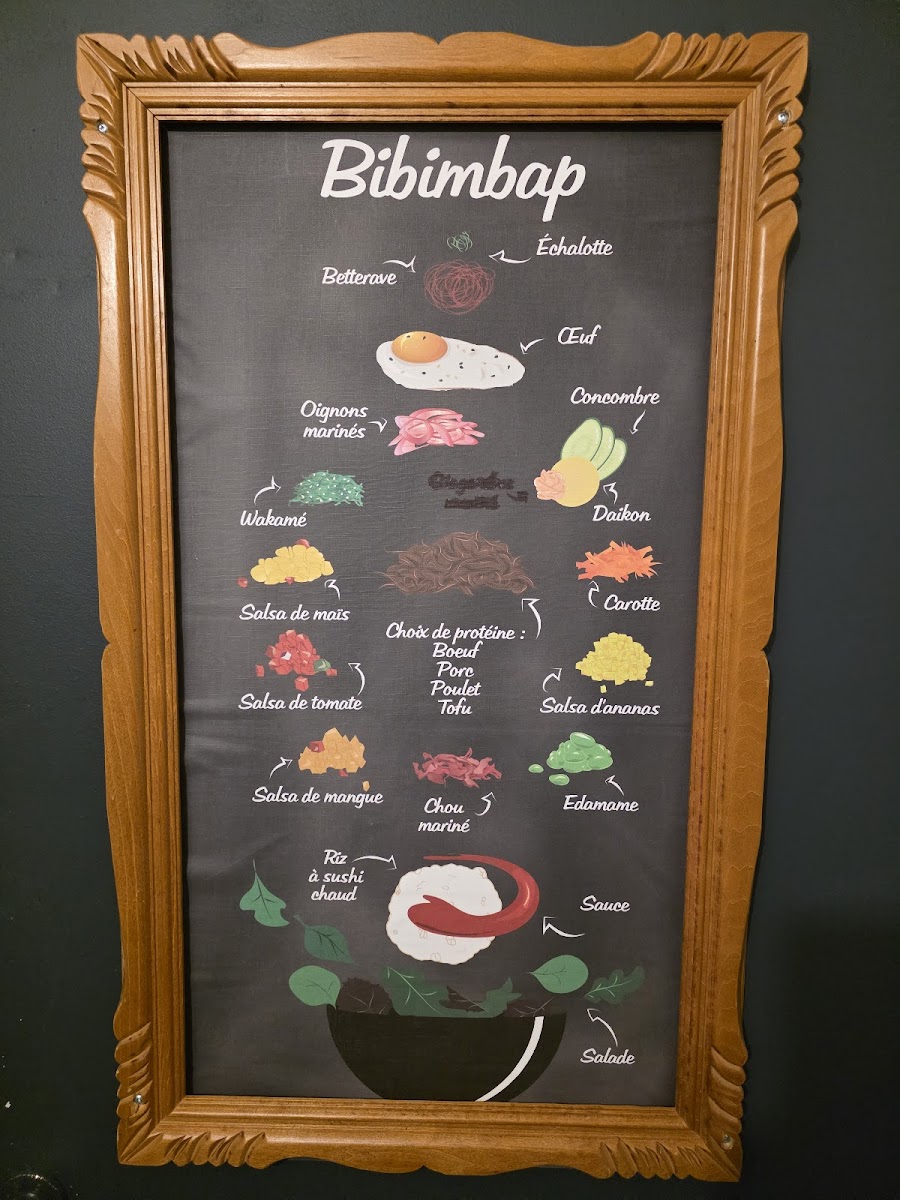 Bibimbap
Échalotte
Betterave
Œuf
Concombre
Oignons
marinés
Wakamé
Daikon
Salsa de maïs
Carotte
Choix de protéine :
Boeuf
Porc
Poulet
Tofu
Salsa de tomate
Salsa d'ananas
Salsa de mangue
Chou
mariné
Edamame
Riz
à sushi
chaud
Sauce
Salade